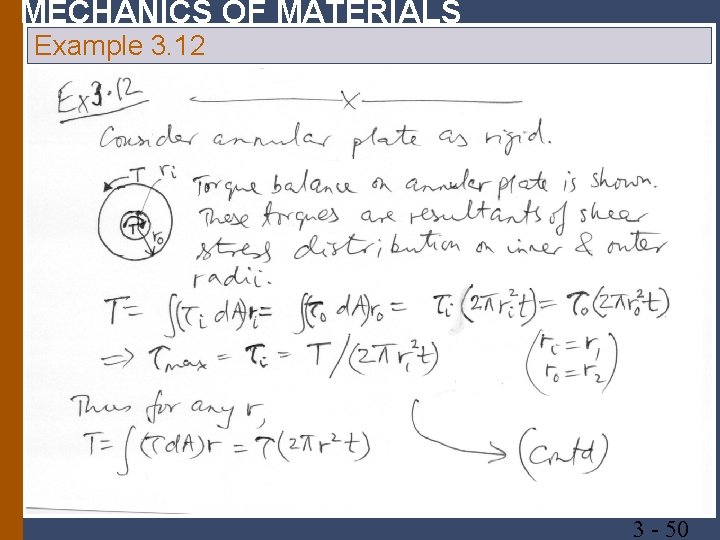 MECHANICS OF MATERIALS
Example 3. 12
Ex3.12
x
Consider annular plate as rigid.
T ri
T ro
Torque balance on annular plate is shown.
These torques are resultants of shear
stress distribution on inner & outer
radii.
T = ∫(τi dA)ri = ∫(τo dA)ro = τi(2πri²t) = τo(2πro²t)
⇒ τmax = τi = T/(2πr1²t) (ri = r1
ro = r2)
Thus for any r,
T = ∫(τdA)r = τ(2πr²t) (Contd)
3 - 50